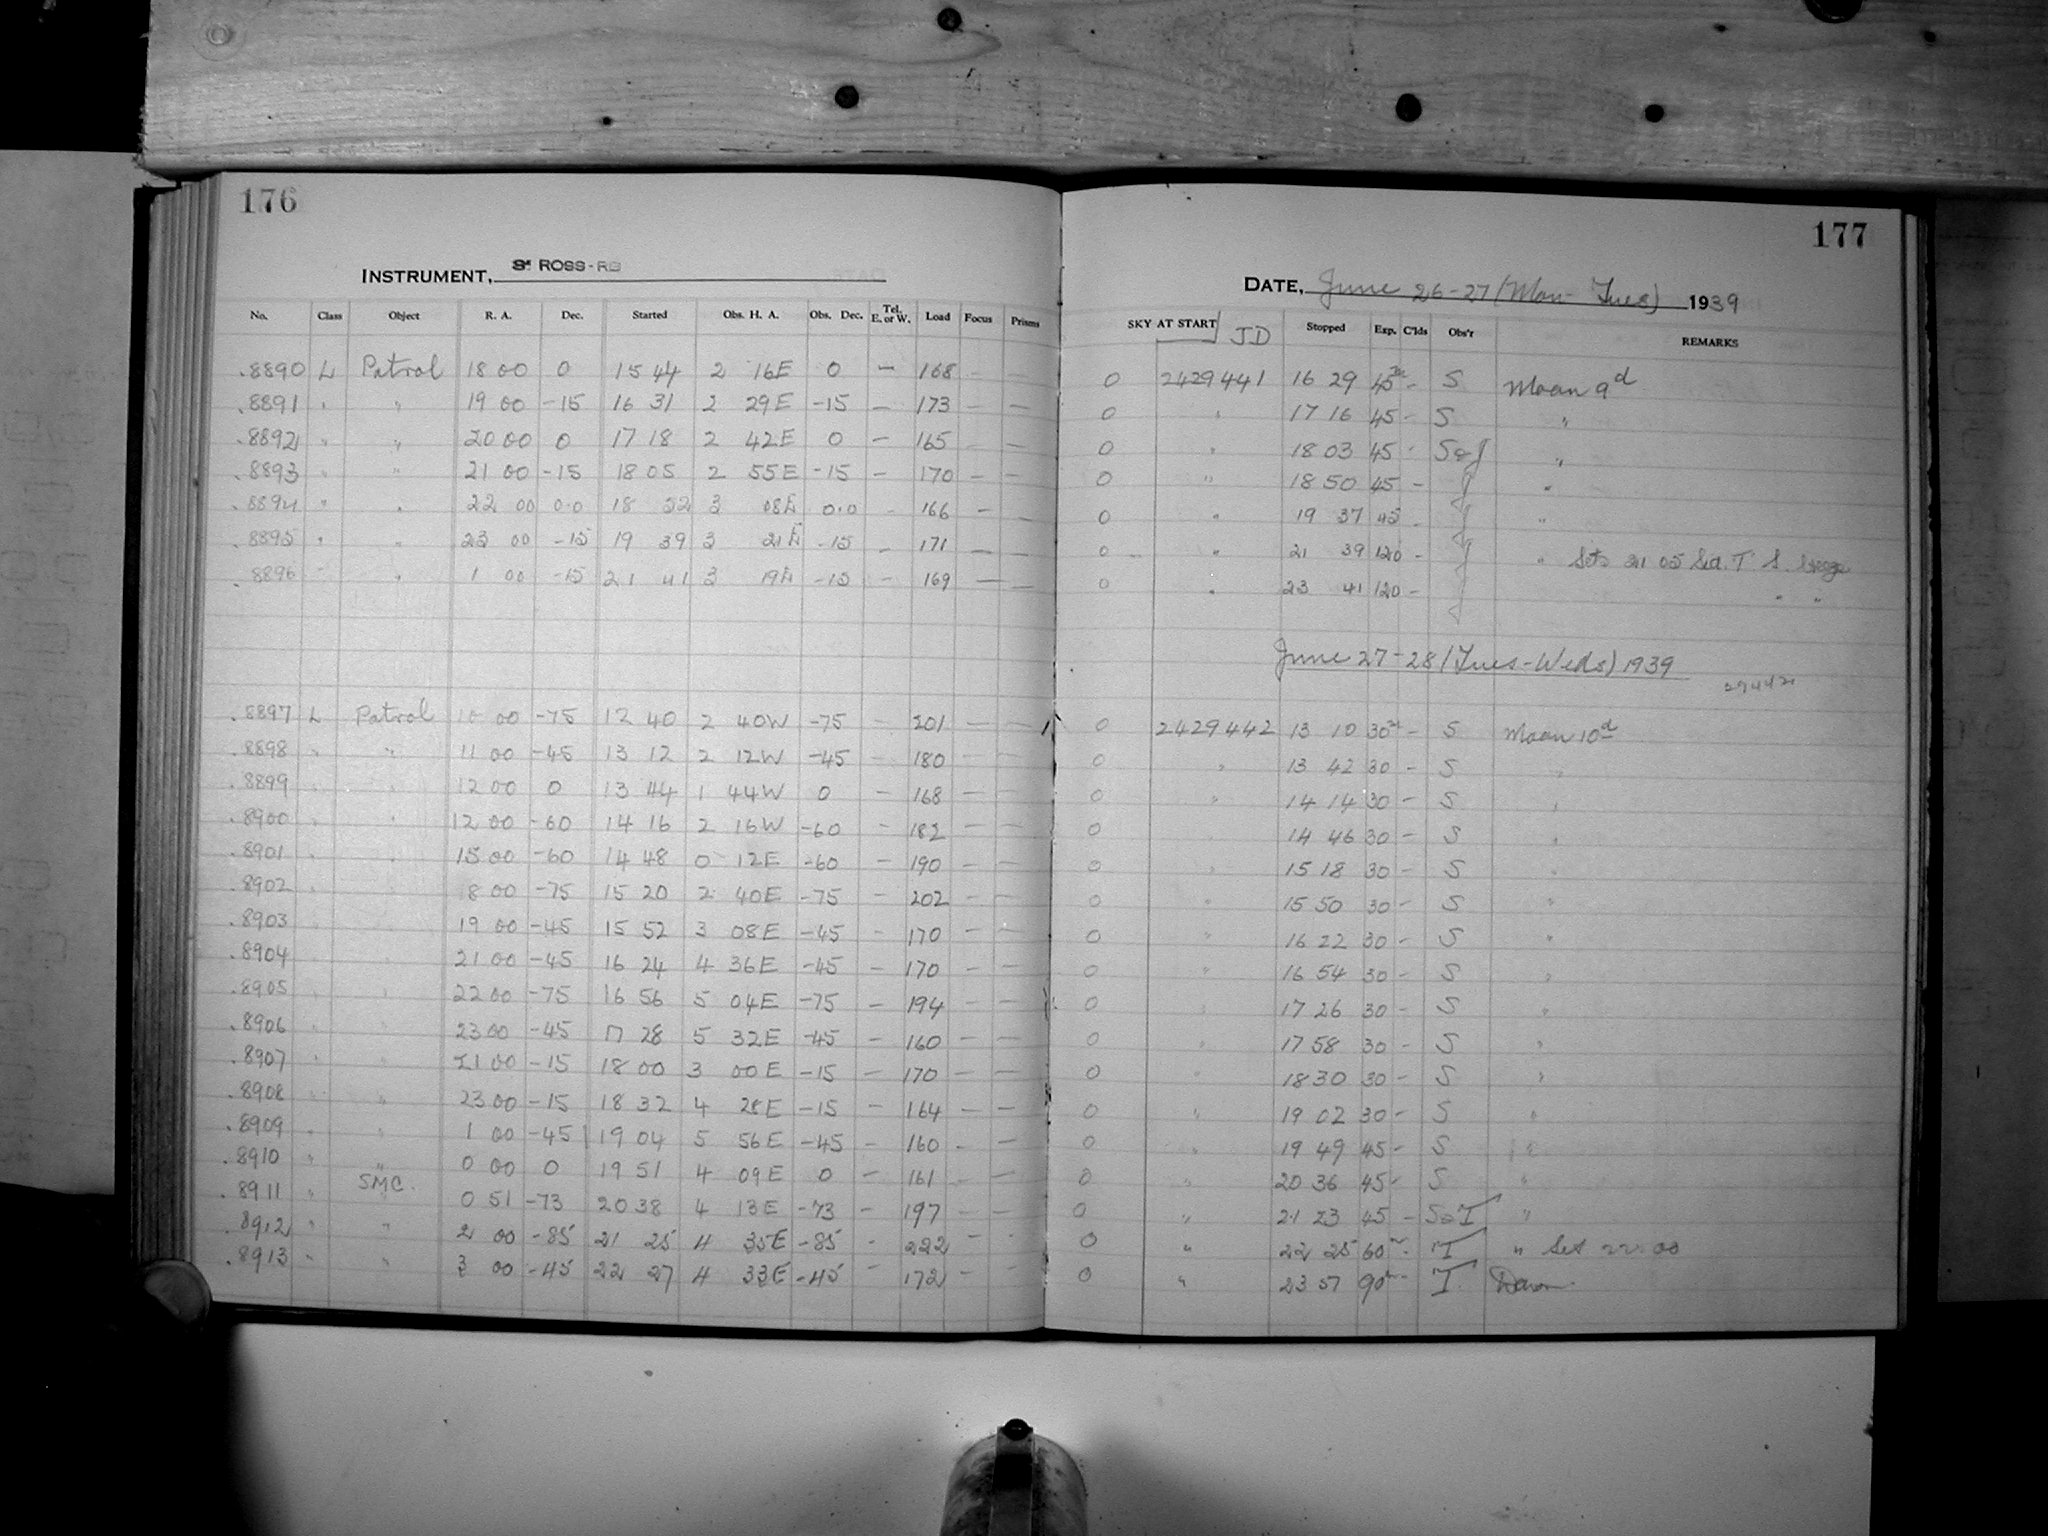 176
INSTRUMENT, ROSS-RB
No. Class Object R. A. Dec. Started Obs. H. A. Obs. Dec. Tel. E. or W. Load Focus Prisms
.8890 L Patrol 18 00 0 15 44 2 16E 0 – 168 – –
.8891 " " 19 00 -15 16 31 2 29E -15 – 173 – –
.8892 " " 20 00 0 17 18 2 42E 0 – 165 – –
.8893 " " 21 00 -15 18 05 2 55E -15 – 170 – –
.8894 " " 22 00 0.0 18 52 3 08E 0.0 – 166 – –
.8895 " " 23 00 -15 19 39 3 21E -15 – 171 – –
.8896 " " 1 00 -15 21 41 3 19E -15 – 169 – –
.8897 L Patrol 10 00 -75 12 40 2 40W -75 – 201 – –
.8898 " " 11 00 -45 13 12 2 12W -45 – 180 – –
.8899 " " 12 00 0 13 44 1 44W 0 – 168 – –
.8900 " " 12 00 -60 14 16 2 16W -60 – 182 – –
.8901 " " 15 00 -60 14 48 0 12E -60 – 190 – –
.8902 " " 8 00 -75 15 20 2 40E -75 – 202 – –
.8903 " " 19 00 -45 15 52 3 08E -45 – 170 – –
.8904 " " 21 00 -45 16 24 4 36E -45 – 170 – –
.8905 " " 22 00 -75 16 56 5 04E -75 – 194 – –
.8906 " " 23 00 -45 17 28 5 32E -45 – 160 – –
.8907 " " 21 00 -15 18 00 3 00E -15 – 170 – –
.8908 " " 23 00 -15 18 32 4 28E -15 – 164 – –
.8909 " " 1 00 -45 19 04 5 56E -45 – 160 – –
.8910 " " 0 00 0 19 51 4 09E 0 – 161 – –
.8911 " SMC. 0 51 -73 20 38 4 13E -73 – 197 – –
.8912 " " 2 00 -85 21 25 4 35E -85 – 222 – –
.8913 " " 3 00 -45 22 27 4 33E -45 – 172 – –
177
DATE, June 26-27 (Mon- Tues) 1939
SKY AT START JD Stopped Exp. C'lds Obs'r REMARKS
0 2429441 16 29 45m – S Moon 9d
0 " 17 16 45 – S "
0 " 18 03 45 – S&J "
0 " 18 50 45 – J "
0 " 19 37 45 – J "
0 " 21 39 120 – J " Sets 21 05 Sid. T S.
0 " 23 41 120 – J " "
June 27-28 (Tues-Weds) 1939
29442
0 2429442 13 10 30m – S Moon 10d
0 " 13 42 30 – S "
0 " 14 14 30 – S "
0 " 14 46 30 – S "
0 " 15 18 30 – S "
0 " 15 50 30 – S "
0 " 16 22 30 – S "
0 " 16 54 30 – S "
0 " 17 26 30 – S "
0 " 17 58 30 – S "
0 " 18 30 30 – S "
0 " 19 02 30 – S "
0 " 19 49 45 – S "
0 " 20 36 45 – S "
0 " 21 23 45 – S&T "
0 " 22 25 60m – T " Set 22 00
0 " 23 57 90m – T Dawn